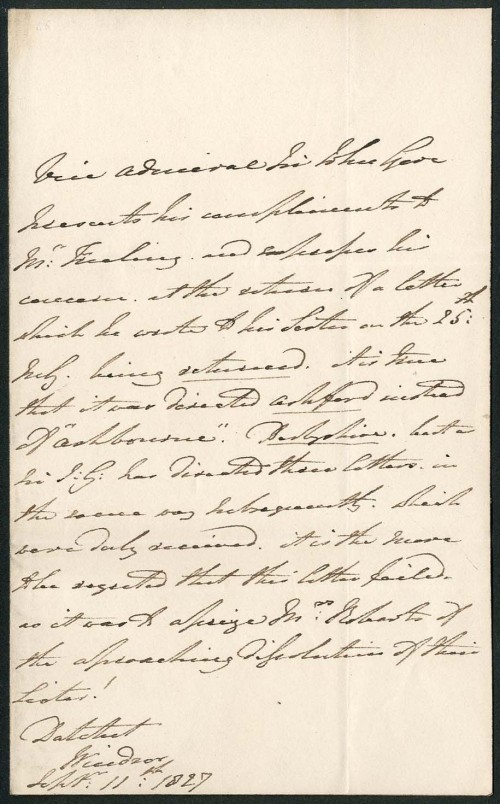 Vice Admiral Sir John Gore
presents his compliments to
Mr. Freeling. and expresses his
concern. at the return. of a letter
which he wrote to his Sister on the 25:th
July. being returned. it is true
that it was directed ashford instead
of "ashbourne". Derbyshire. but a
Sir J: G: has directed three letters. in
the same way subsequently. which
were duly received. it is the more
to be regretted that this letter failed.
as it was to aprize Mrs. Roberts of
the aproaching dissolution of their
Sister!
Datchet
Windsor
Septr. 11:th 1827